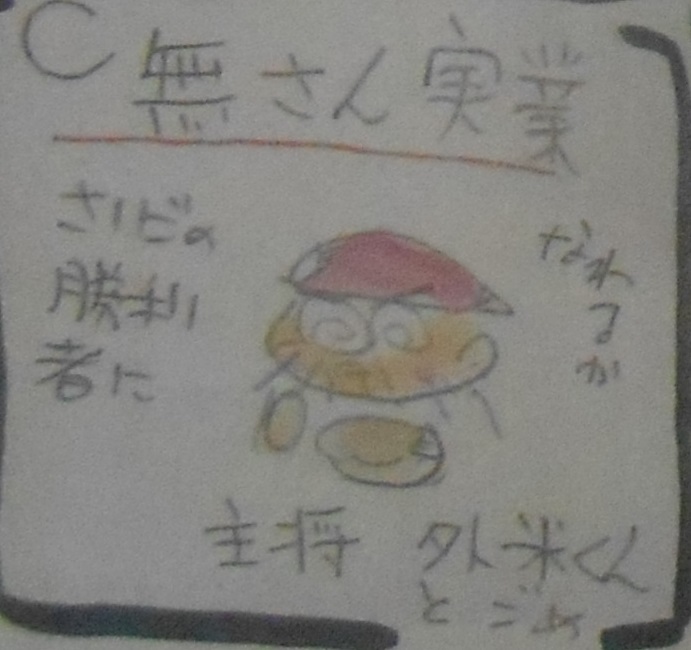 C 無さん実業
さいごの
勝利
者に
なれ
るか
主将 外米くん
とごめ